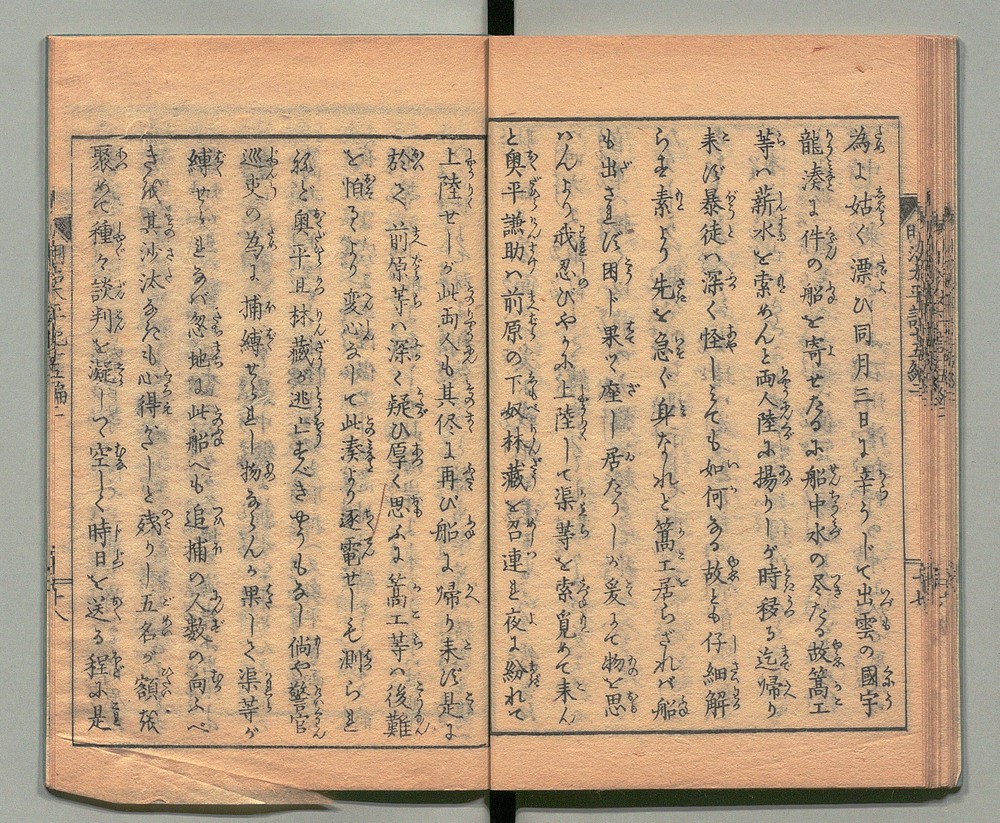 為に姑く漂ひ同月三日に辛うじて出雲の國宇
龍湊に件の船を寄せたるに船中水の尽たる故篙工
等ハ薪水を索めんと両人陸に揚りしが時移る迄帰り
来ず暴徒ハ深く怪しとても如何なる故とも仔細解
らず素より先を急ぐ身なれど篙工居らざれバ船
も出されず困じ果て座し居たりしが爰にて物を思
はんより我忍びやかに上陸して渠等を索覓めて来ん
と奥平謙助ハ前原の下奴林蔵を召連れ夜に紛れて
上陸せしが此両人も其侭に再び船に帰り来ず是に
於て前原等ハ深く疑ひ厚く思ふに篙工等ハ後難
を怕るより変心なして此湊より逐電せしも測られ
ねど奥平且林蔵が逃亡すべきやうもなし倘や警官
巡吏の為に捕縛せられし物ならんか果して渠等が
縛せられなバ忽地に此船へも追捕の人数の向ふべ
きに其沙汰なきも心得がたしと残りし五名が額を
聚めて種々談判を凝しつゝ空しく時日を送る程に是